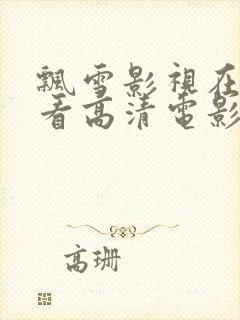 飄雪影視在
看高清電影
高珊